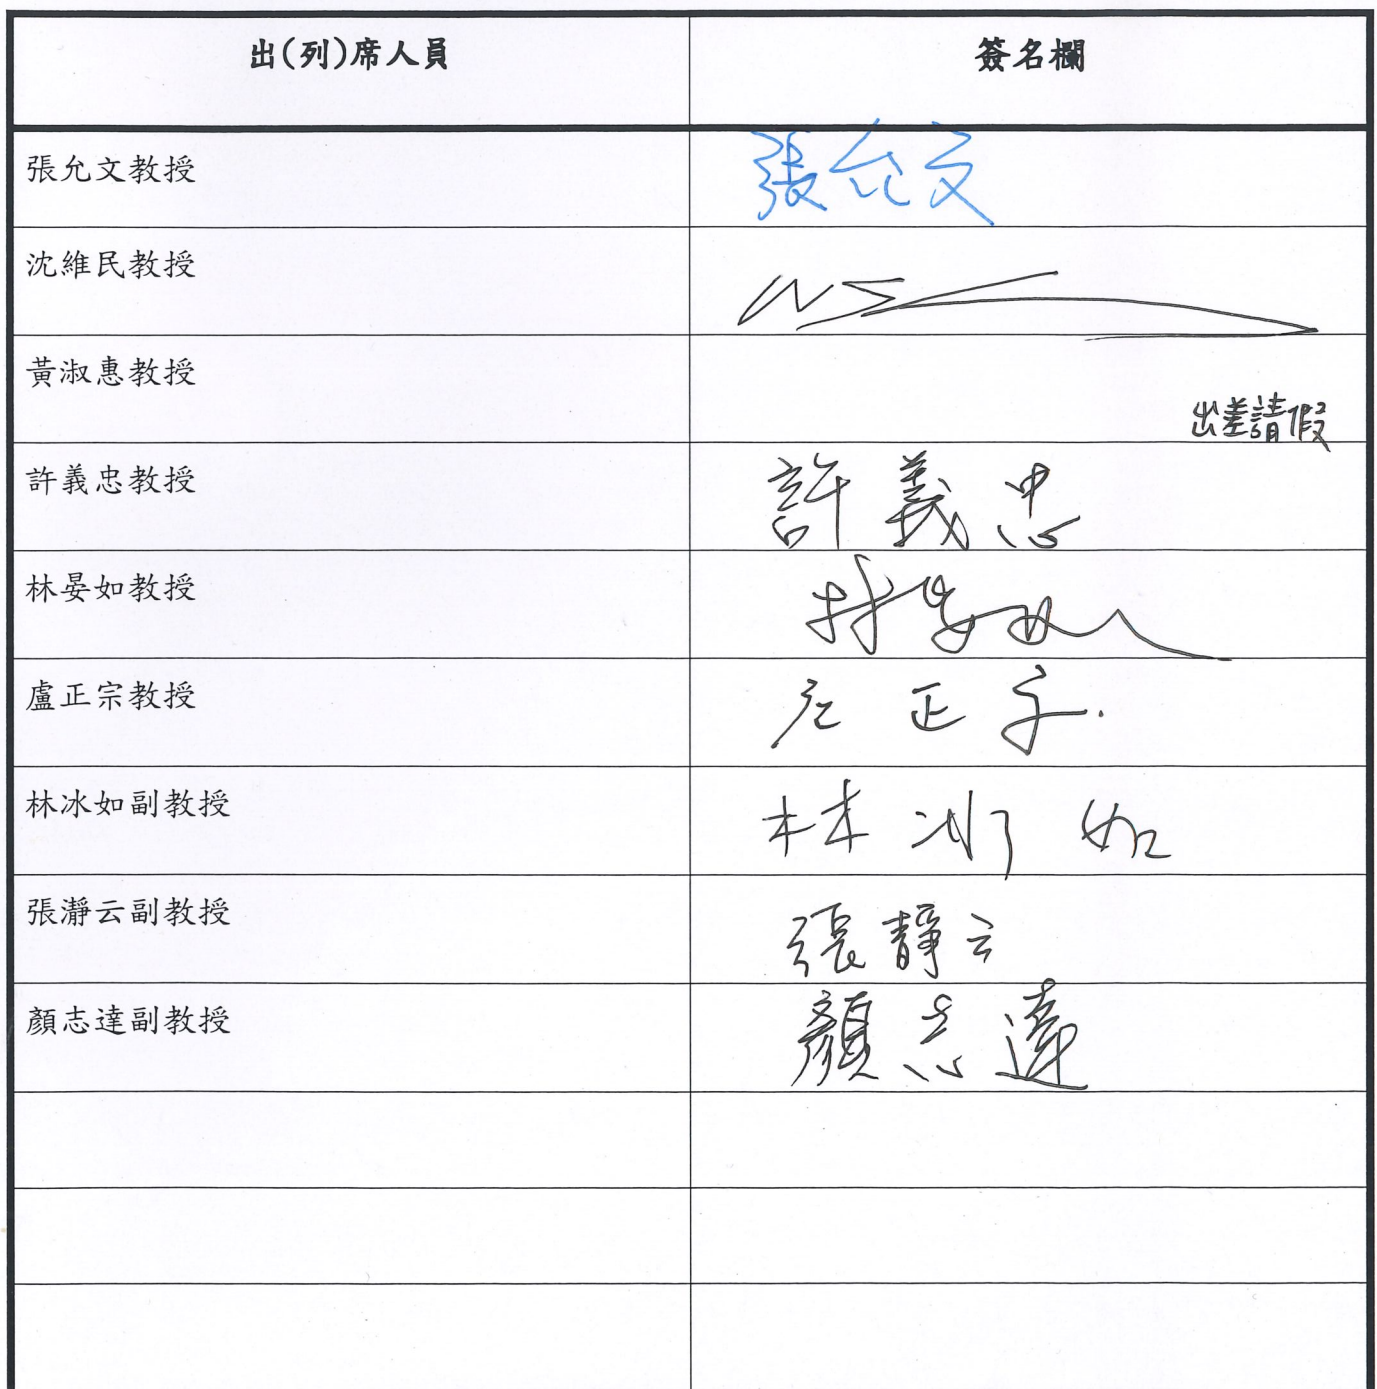 出(列)席人員 簽名欄
張允文教授 張允文
沈維民教授
黃淑惠教授 出差請假
許義忠教授 許義忠
林晏如教授 林晏如
盧正宗教授 正宗
林冰如副教授 林冰如
張瀞云副教授 張靜云
顏志達副教授 顏志達